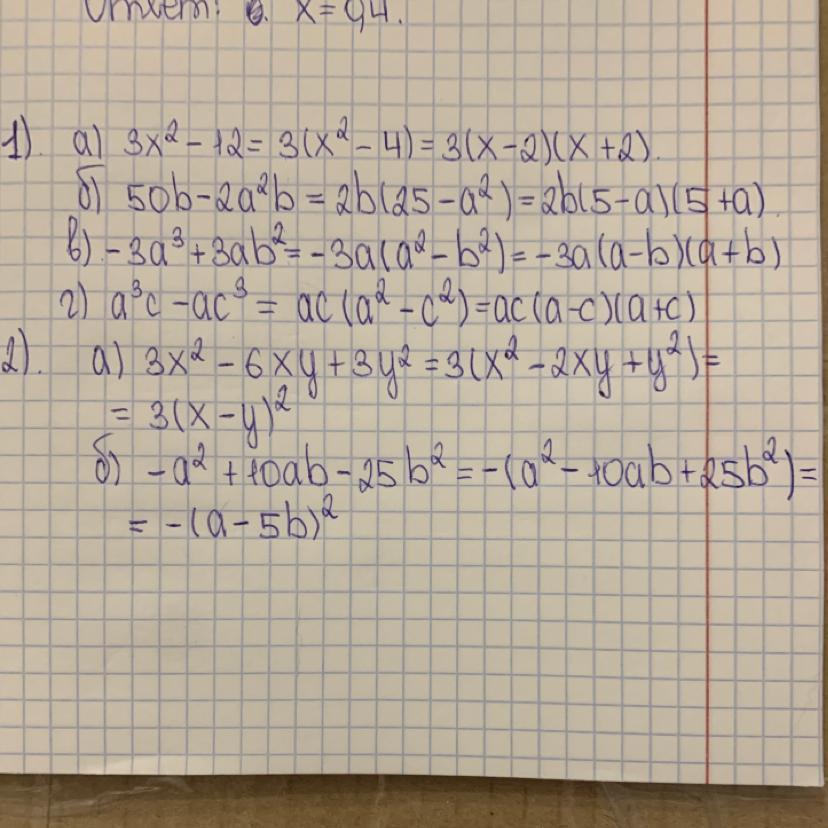 Ответ: x=0,4.
1). а) 3x² - 12 = 3(x² - 4) = 3(x - 2)(x + 2).
б) 50b - 2a²b = 2b(25 - a²) = 2b(5 - a)(5 + a)
в) -3a³ + 3ab² = -3a(a² - b²) = -3a(a - b)(a + b)
г) a³c - ac³ = ac(a² - c²) = ac(a - c)(a + c)
2). а) 3x² - 6xy + 3y² = 3(x² - 2xy + y²) =
= 3(x - y)²
б) -a² + 10ab - 25b² = -(a² - 10ab + 25b²) =
= -(a - 5b)²